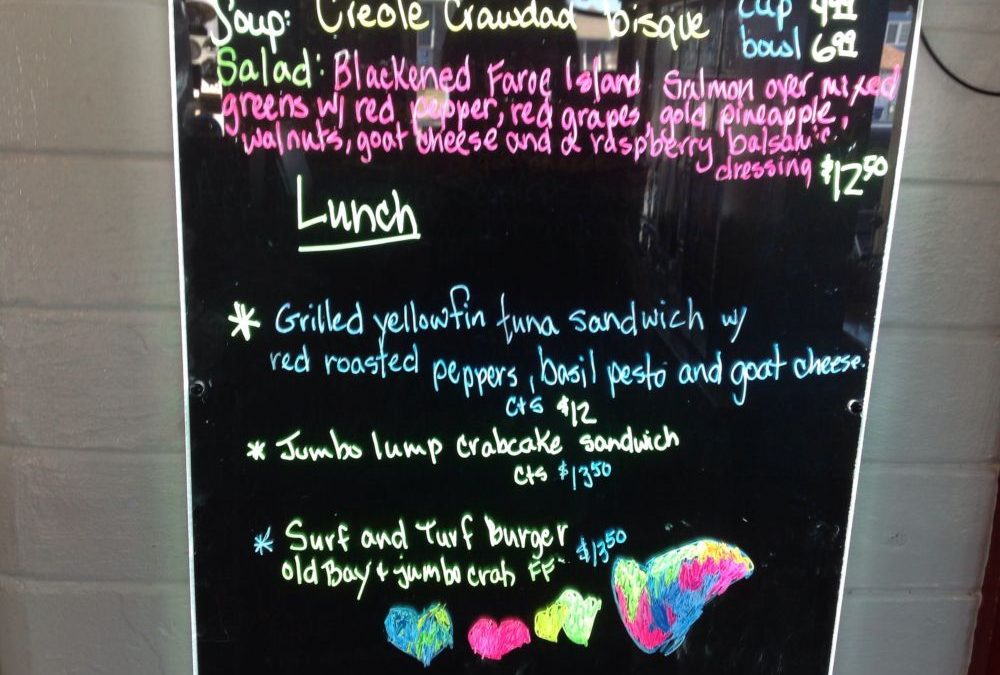 Soup: Creole Crawdad bisque cup 4.99
bowl 6.99
Salad: Blackened Faroe Island Salmon over mixed
greens w/ red pepper, red grapes, gold pineapple,
walnuts, goat cheese and a raspberry balsamic
dressing $12.50
Lunch
* Grilled yellowfin tuna sandwich w/
red roasted peppers, basil pesto and goat cheese.
cts $12
* Jumbo lump crabcake sandwich
cts $13.50
* Surf and Turf burger $13.50
old Bay + jumbo crab FF